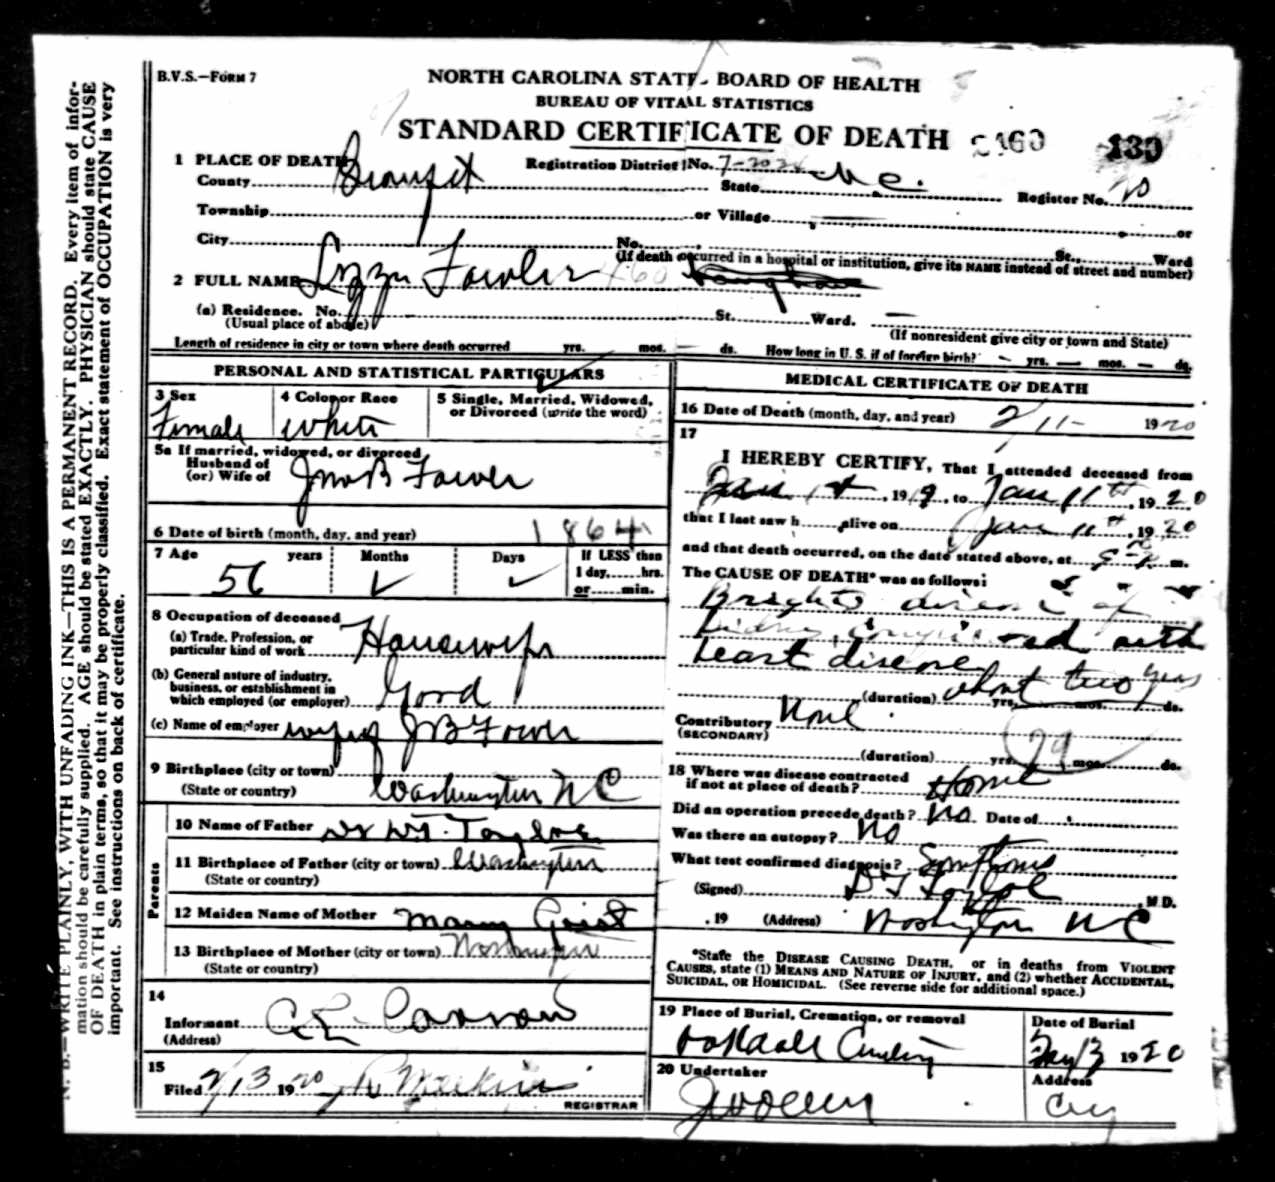 B.V.S.—FORM 7
NORTH CAROLINA STATE BOARD OF HEALTH
BUREAU OF VITAL STATISTICS
STANDARD CERTIFICATE OF DEATH 2460 130
1 PLACE OF DEATH Registration District No.
County Beaufort State N.C. Register No. 20
Township or Village or
City No. St., Ward
(If death occurred in a hospital or institution, give its NAME instead of street and number)
2 FULL NAME Lizzie Fowler 460
(a) Residence. No. St. Ward.
(Usual place of abode) (If nonresident give city or town and State)
Length of residence in city or town where death occurred yrs. mos. ds. How long in U. S. if of foreign birth? yrs. mos. ds.
PERSONAL AND STATISTICAL PARTICULARS
3 Sex 4 Color or Race 5 Single, Married, Widowed,
or Divorced (write the word)
Female White
5a If married, widowed, or divorced
Husband of
(or) Wife of Jno B Fowler
6 Date of birth (month, day, and year) 1864
7 Age years Months Days If LESS than
1 day, hrs.
56 or min.
8 Occupation of deceased
(a) Trade, Profession, or
particular kind of work Housewife
(b) General nature of industry,
business, or establishment in
which employed (or employer) Good
(c) Name of employer wife of J B Fowler
9 Birthplace (city or town)
(State or country) Washington N C
Parents
10 Name of Father
11 Birthplace of Father (city or town) Washington
(State or country)
12 Maiden Name of Mother Mary Grist
13 Birthplace of Mother (city or town) Washington
(State or country)
14
Informant
(Address)
15
Filed 2/13 1920 Meekins
REGISTRAR
MEDICAL CERTIFICATE OF DEATH
16 Date of Death (month, day, and year) 2/11- 1920
17
I HEREBY CERTIFY, That I attended deceased from
1919, to Jan 11th, 1920
that I last saw h alive on Jan 11th, 1920
and that death occurred, on the date stated above, at m.
The CAUSE OF DEATH* was as follows:
Brights disease of
Kidney with
heart disease
(duration) about two years yrs. mos. ds.
Contributory None
(SECONDARY)
(duration) yrs. mos. ds.
18 Where was disease contracted
if not at place of death? Home
Did an operation precede death? No. Date of
Was there an autopsy? No
What test confirmed diagnosis? Symptoms
(Signed) D T Tayloe, M.D.
, 19 (Address) Washington N C
*State the DISEASE CAUSING DEATH, or in deaths from VIOLENT
CAUSES, state (1) MEANS AND NATURE OF INJURY, and (2) whether ACCIDENTAL,
SUICIDAL, OR HOMICIDAL. (See reverse side for additional space.)
19 Place of Burial, Cremation, or removal Date of Burial
Oakdale Cemetery 1920
20 Undertaker Address
City
N. B.—WRITE PLAINLY, WITH UNFADING INK—THIS IS A PERMANENT RECORD. Every item of infor-
mation should be carefully supplied. AGE should be stated EXACTLY. PHYSICIAN should state CAUSE
OF DEATH in plain terms, so that it may be properly classified. Exact statement of OCCUPATION is very
important. See instructions on back of certificate.